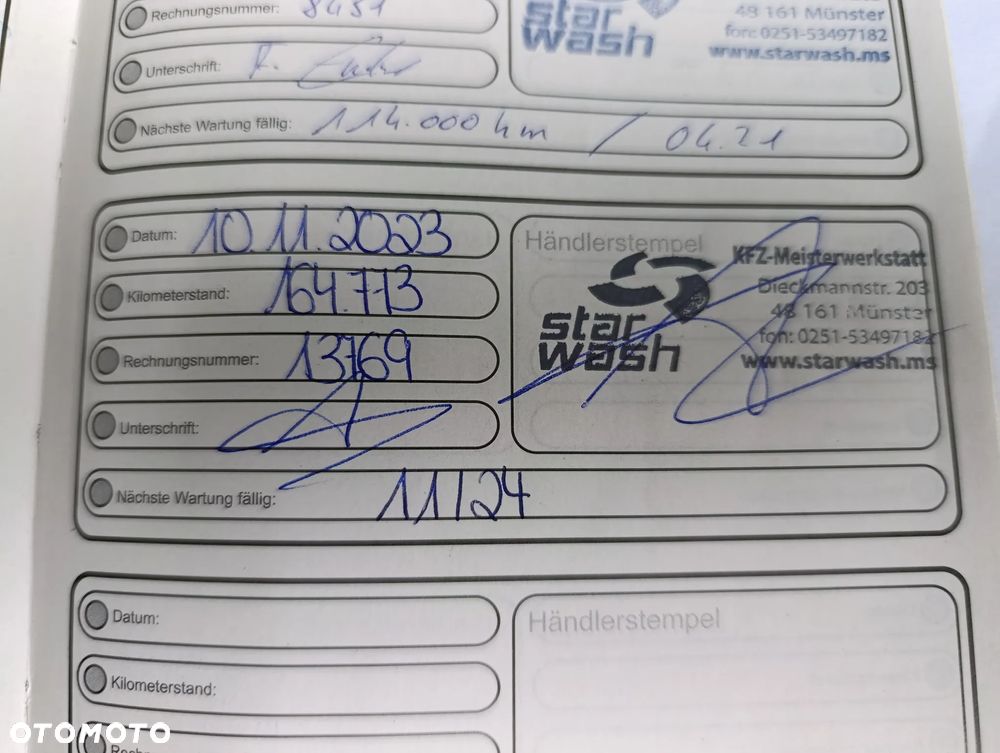 Rechnungsnummer: 8451
star wash
48 161 Münster
fon: 0251-53497182
www.starwash.ms
Unterschrift:
Nächste Wartung fällig: 114.000 km / 04.21
Datum: 10.11.2023
Kilometerstand: 164.773
Rechnungsnummer: 13769
Unterschrift:
Nächste Wartung fällig: 11/24
Händlerstempel
star wash
KFZ-Meisterwerkstatt
Dieckmannstr. 203
48 161 Münster
fon: 0251-53497182
www.starwash.ms
Datum:
Kilometerstand:
Händlerstempel
OTOMOTO